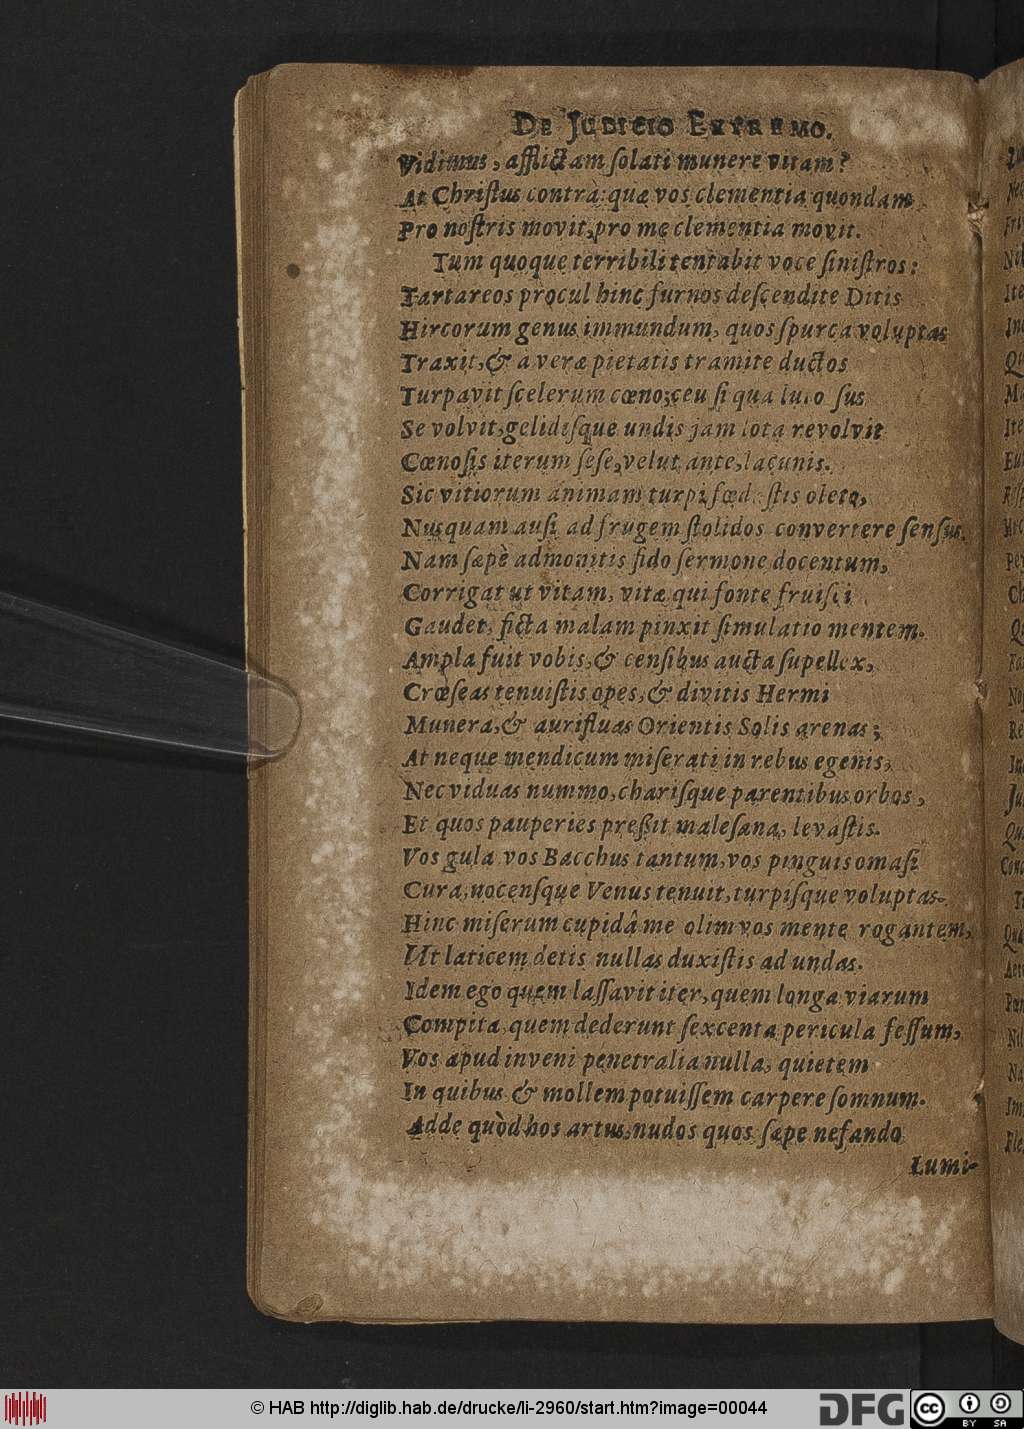 DE JUDICIO EXTREMO.
Vidimus, afflictam solati munere vitam?
At Christus contrà: quæ vos clementia quondam
Pro nostris movit, pro me clementia movit.
Tum quoque terribili tentabit voce sinistros:
Tartareos procul hinc furnos descendite Ditis
Hircorum genus immundum, quos spurca voluptas
Traxit, & a veræ pietatis tramite ductos
Turpavit scelerum cœno; ceu si qua luto sus
Se volvit, gelidisque undis jam lota revolvit
Cœnosis iterum sese, velut ante, lacunis.
Sic vitiorum animam turpi fœdastis oleto,
Nusquam ausi ad frugem stolidos convertere sensus.
Nam sæpè admonitis fido sermone docentum,
Corrigat ut vitam, vitæ qui fonte fruisci
Gaudet, ficta malam pinxit simulatio mentem.
Ampla fuit vobis, & censibus aucta supellex,
Crœseas tenuistis opes, & divitis Hermi
Munera, & aurifluas Orientis Solis arenas;
At neque mendicum miserati in rebus egenis,
Nec viduas nummo, charisque parentibus orbos,
Et quos pauperies preßit malesana, levastis.
Vos gula vos Bacchus tantum, vos pinguis omasi
Cura, nocensque Venus tenuit, turpisque voluptas.
Hinc miserum cupidâ me olim vos mente rogantem,
Ut laticem detis nullas duxistis ad undas.
Idem ego quem lassavit iter, quem longa viarum
Compita, quem dederunt sexcenta pericula fessum,
Vos apud inveni penetralia nulla, quietem
In quibus & mollem potuissem carpere somnum.
Adde quòd hos artus, nudos quos sæpe nefando
Lumi-
© HAB http://diglib.hab.de/drucke/li-2960/start.htm?image=00044
DFG
cc
BY SA